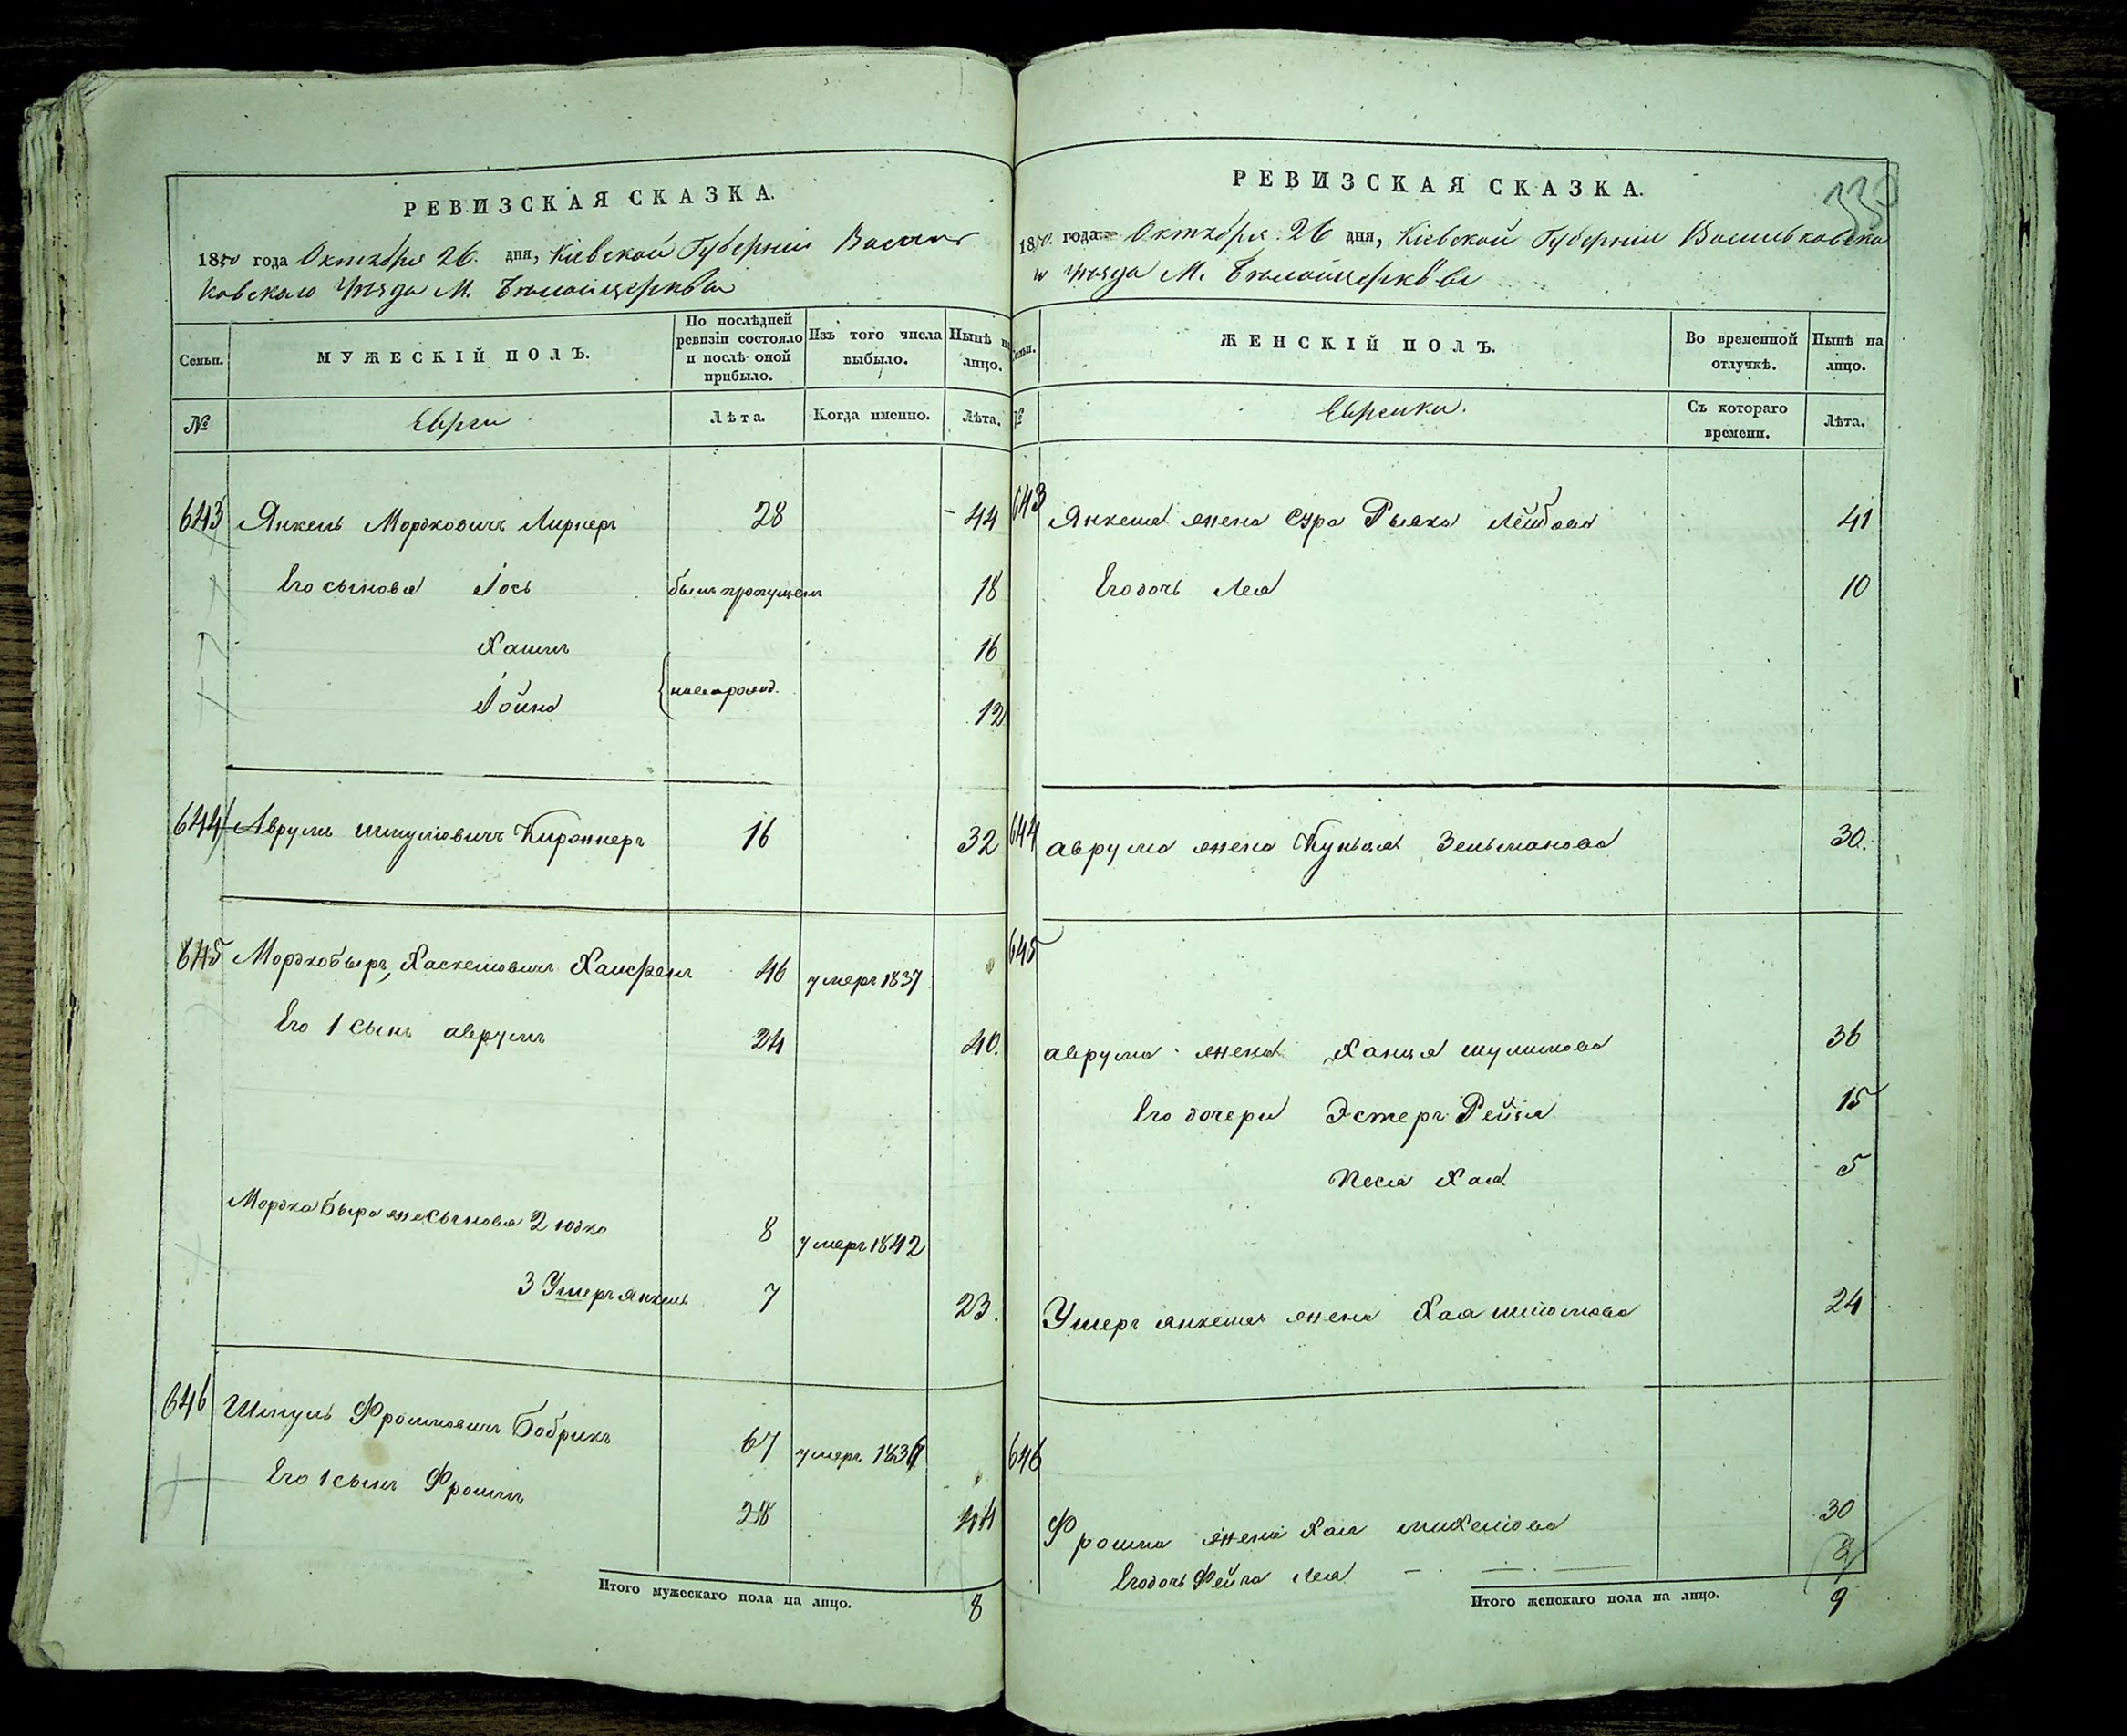 РЕВИЗСКАЯ СКАЗКА.
1850 года Октября 26. дня, Кіевской Губерніи Василь
ковскаго уѣзда М. Бѣлойцеркви
Семьи.
МУЖЕСКІЙ ПОЛЪ.
По послѣдней ревизіи состояло и послѣ оной прибыло.
Изъ того числа выбыло.
Нынѣ на лицо.
№
Евреи
Лѣта.
Когда именно.
Лѣта.
643 Янкель Мордковичъ Лирнеръ 28 44
Его сыновья Іось былъ пропущенъ 18
Хаимъ 16
Іойна новорожд. 12
644 Аврумъ Шмулювичъ 16 32
645 Мордкобыръ Хаскелювичъ 46 умеръ 1837
Его 1 сынъ аврумъ 24 40.
Мордка Быра же сыновья 2 юдко 8 умеръ 1842
3 Ушеръ янкель 7 23.
646 Шмуль Фроимовичъ Бобрикъ 67 умеръ
Его 1 сынъ Фроимъ 28 44
Итого мужескаго пола на лицо. 8
РЕВИЗСКАЯ СКАЗКА.
1850. года Октября 26 дня, Кіевской Губерніи Васильковска
го уѣзда М. Бѣлойцеркви
Семьи.
ЖЕНСКІЙ ПОЛЪ.
Во временной отлучкѣ.
Нынѣ на лицо.
№
Еврейки.
Съ котораго времени.
Лѣта.
643 Янкеля жена Сура Рывка Лейбова 41
Его дочь Лея 10
644 аврума жена Кунця Зельманова 30.
645
аврума жена Ханця шулимова 36
Его дочери Эстеръ Рейзя 15
Песя Хая 5
Ушеръ янкеля жена Хая шліомова 24
646
Фроима жена Хая михелова 30
Его дочь Фейга Лея 8
Итого женскаго пола на лицо. 9